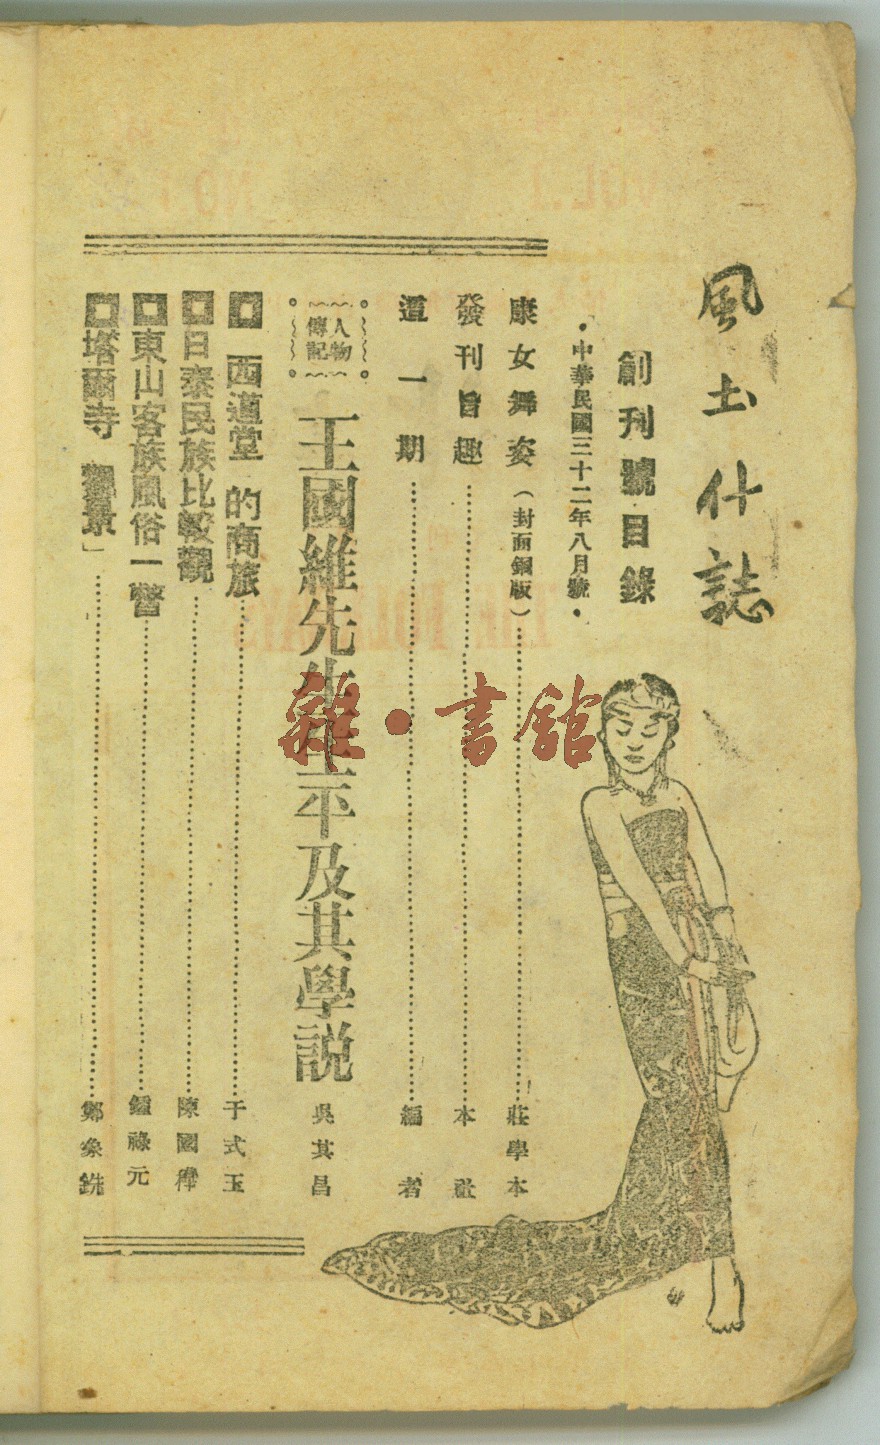 風土什誌
創刊號目錄
•中華民國三十二年八月號•
康女舞姿(封面銅版)……莊學本
發刊旨趣……本社
這一期……編者
人物傳記
王國維先生生平及其學説 吳其昌
西道堂的商旅……于式玉
日泰民族比較觀……陳國樺
東山客族風俗一瞥……鍾祿元
塔爾寺」……鄭象銑
雜·書館